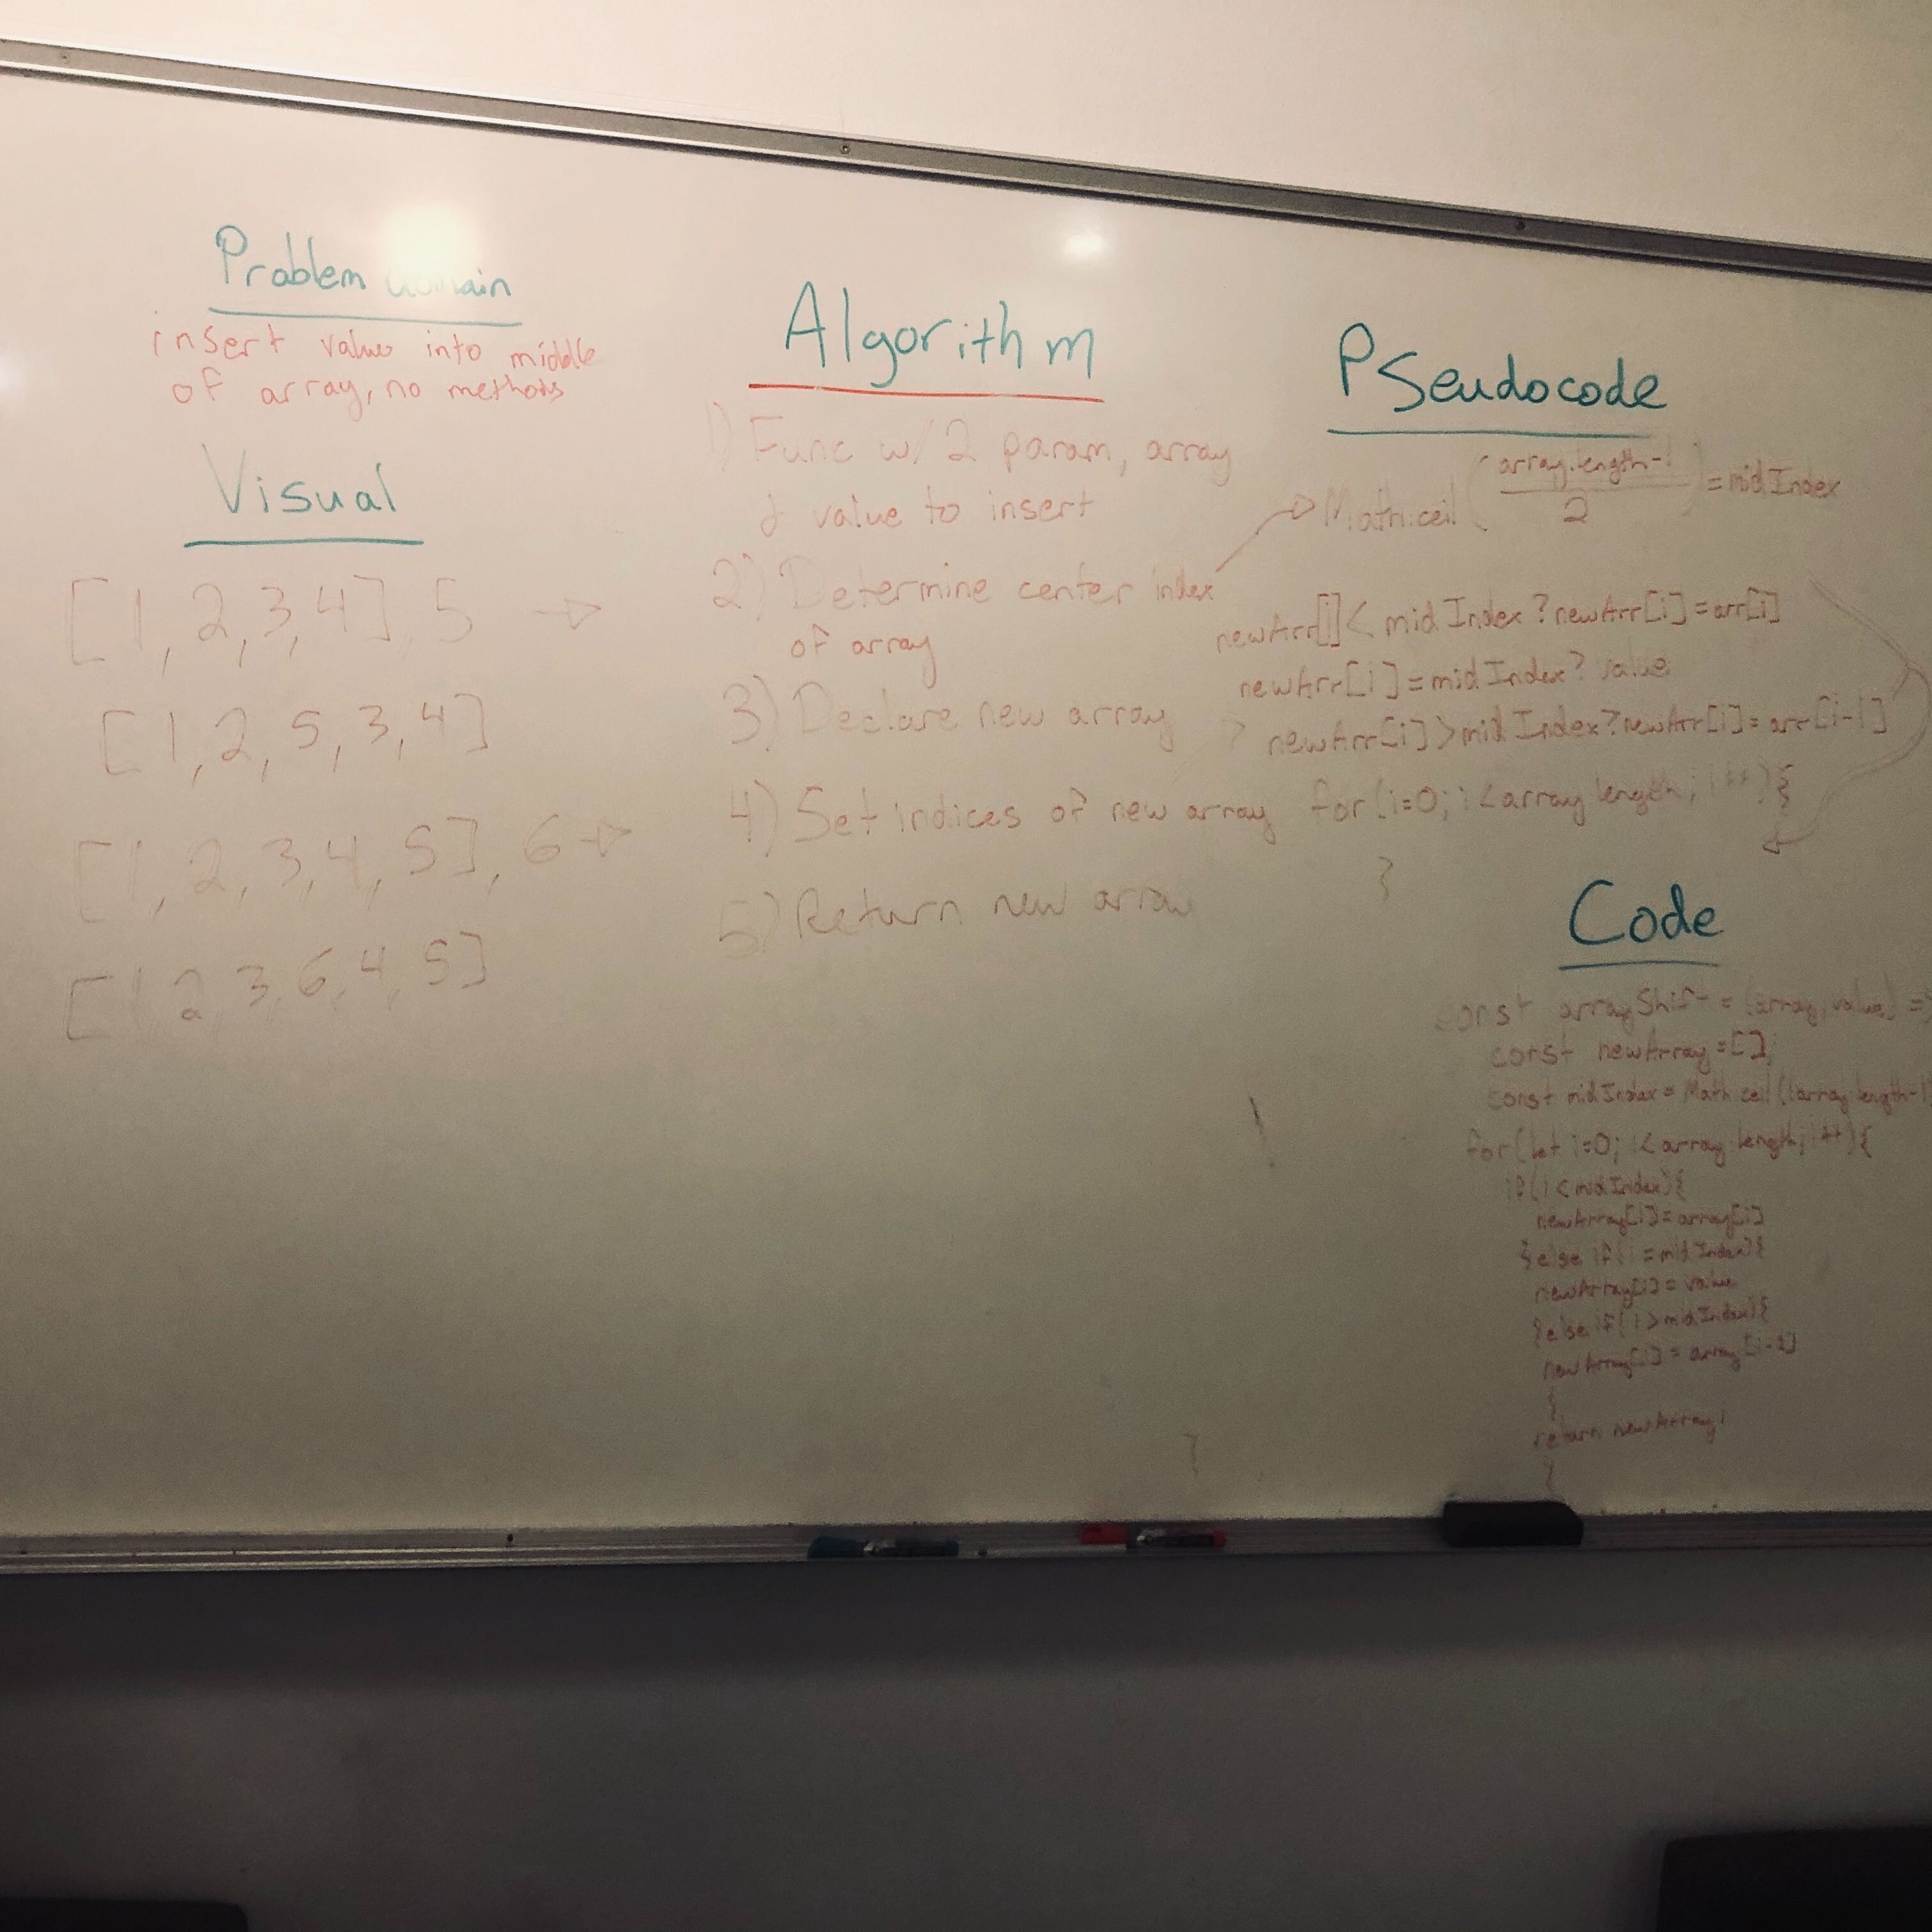 Problem domain
insert value into middle
of array, no methods
Visual
[1, 2, 3, 4], 5 →
[1, 2, 5, 3, 4]
[1, 2, 3, 4, 5], 6 →
[1, 2, 3, 6, 4, 5]
Algorithm
1) Func w/ 2 param, array
& value to insert
2) Determine center index
of array
3) Declare new array
4) Set indices of new array
5) Return new array
Pseudocode
Math.ceil(array.length-1/2) = midIndex
newArr[i] < midIndex ? newArr[i] = arr[i]
newArr[i] = midIndex? value
newArr[i] > midIndex? newArr[i] = arr[i-1]
for(i=0; i<array.length; i++){
}
Code
const arrayShift = (array, value) =>
const newArray = [];
const midIndex = Math.ceil((array.length-1)
for(let i=0; i<array.length; i++){
if(i < midIndex){
newArray[i] = array[i]
}else if(i = midIndex){
newArray[i] = value
}else if(i > midIndex){
newArray[i] = array[i-1]
}
return newArray;
}